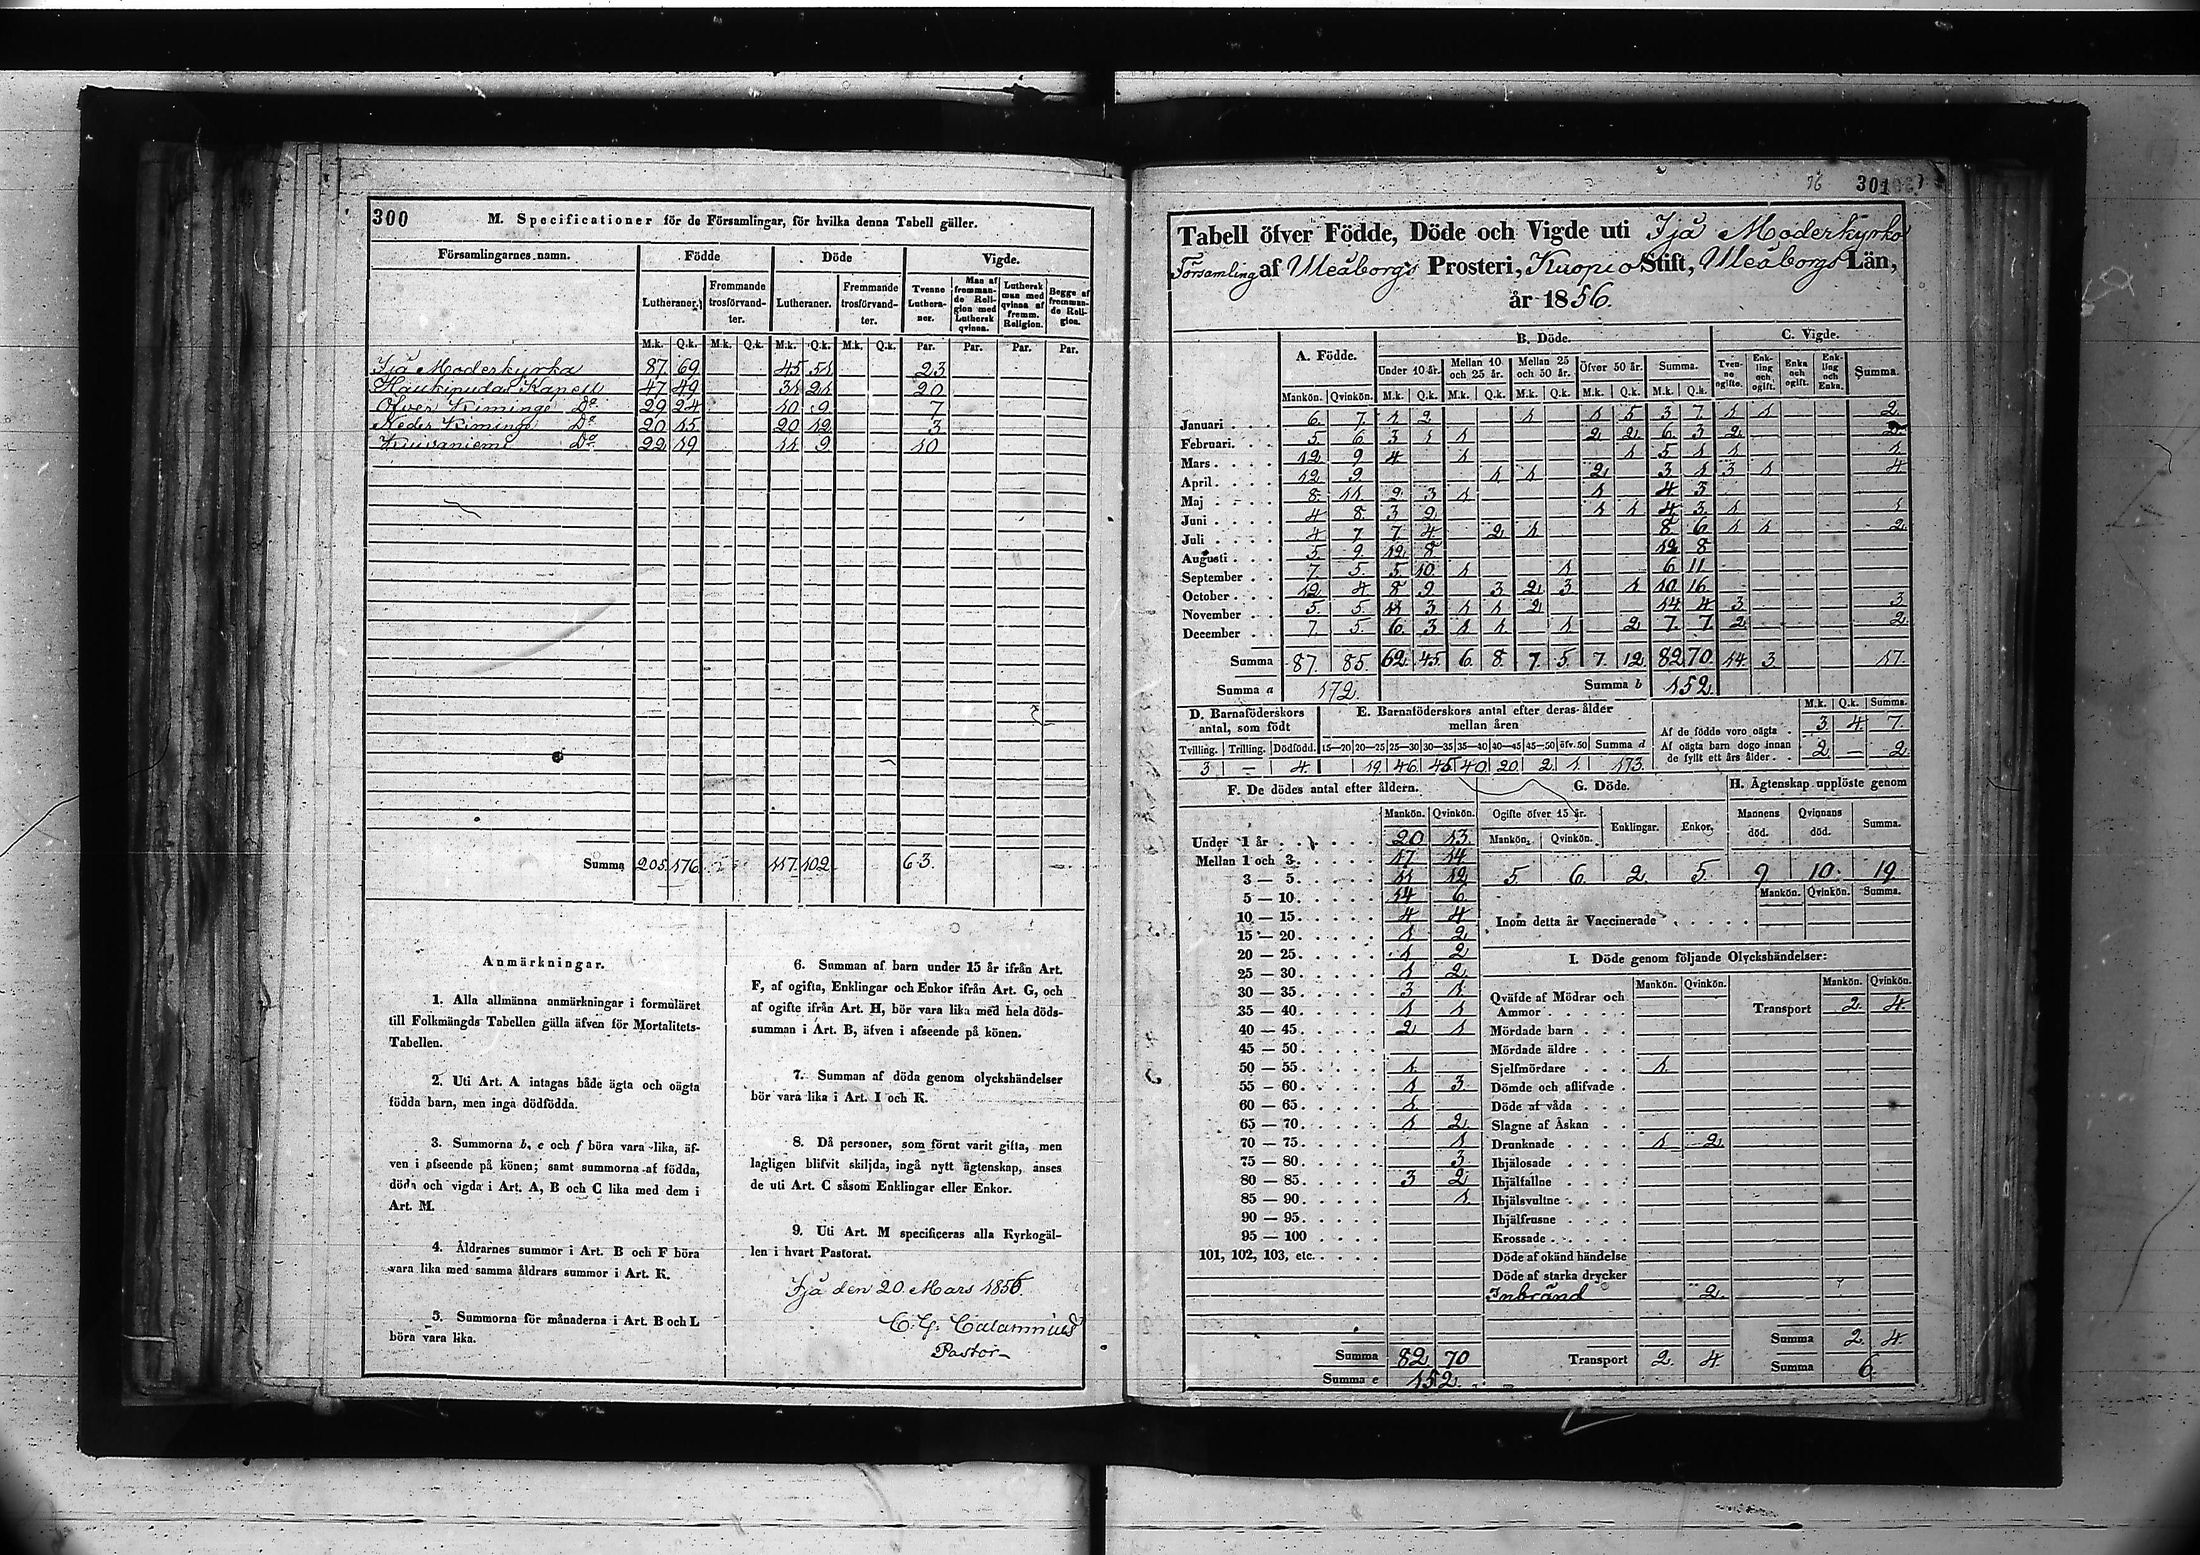 300
M. Specificationer för de Församlingar, för hvilka denna Tabell gäller.
Församlingarnes namn. Födde Döde Vigde.
Lutheraner. Fremmande trosförvandter. Lutheraner. Fremmande trosförvandter. Tvenne Lutheraner. Man af fremmande Religion med Luthersk qvinna. Luthersk man med qvinna af fremm. Religion. Begge af fremmande Religion.
M.k. Q.k. M.k. Q.k. M.k. Q.k. M.k. Q.k. Par. Par. Par. Par.
Ijå Moderkyrka 87 69 45 51 23
Haukipudas Kapell 47 49 31 21 20
Öfver Kiminge Do 29 24 10 9 7
Neder Kiminge Do 20 15 20 12 3
Kuivaniemi Do 22 19 11 9 10
Summa 205 176 117 102 63.
Anmärkningar.
1. Alla allmänna anmärkningar i formuläret
till Folkmängds Tabellen gälla äfven för Mortalitets-
Tabellen.
2. Uti Art. A intagas både ägta och oägta
födda barn, men inga dödfödda.
3. Summorna b, e och f böra vara lika, äf-
ven i afseende på könen; samt summorna af födda,
döda och vigda i Art. A, B och C lika med dem i
Art. M.
4. Åldrarnes summor i Art. B och F böra
vara lika med samma åldrars summor i Art. K.
5. Summorna för månaderna i Art. B och L
böra vara lika.
6. Summan af barn under 15 år ifrån Art.
F, af ogifta, Enklingar och Enkor ifrån Art. G, och
af ogifte ifrån Art. H, bör vara lika med hela döds-
summan i Art. B, äfven i afseende på könen.
7. Summan af döda genom olyckshändelser
bör vara lika i Art. I och K.
8. Då personer, som förut varit gifta, men
lagligen blifvit skiljda, ingå nytt ägtenskap, anses
de uti Art. C såsom Enklingar eller Enkor.
9. Uti Art. M specificeras alla Kyrkogäl-
len i hvart Pastorat.
Ijå den 20 Mars 1856.
Calamnius
Pastor
76 301
Tabell öfver Födde, Döde och Vigde uti Ijå Moderkyrko
Församling af Uleåborgs Prosteri, Kuopio Stift, Uleåborgs Län,
år 1856.
A. Födde. B. Döde. C. Vigde.
Under 10 år. Mellan 10 och 25 år. Mellan 25 och 50 år. Öfver 50 år. Summa. Tvenne ogifte. Enkling och ogift. Enka och ogift. Enkling och Enka. Summa.
Mankön. Qvinkön. M.k. Q.k. M.k. Q.k. M.k. Q.k. M.k. Q.k. M.k. Q.k.
Januari 6. 7. 1 2 1 1 5 3 7 1 1 2
Februari. 5 6 3 1 1 2 2 6 3 2 2
Mars 12 9 4 1 1 5 1 1 1
April 12 9 1 1 2 3 1 3 1 4
Maj 8 11 2 3 1 1 4 3
Juni 4 8 3 2 1 1 4 3 1 1
Juli 4 7 7 4 2 1 8 6 1 1 2
Augusti 5 9 12 8 12 8
September 7 5 5 10 1 1 6 11
October 12 4 8 9 3 2 3 1 10 16
November 5 5 11 3 1 1 2 14 4 3 3
December 7 5 6 3 1 1 1 2 7 7 2 2
Summa 87. 85. 62 45 6 8 7 5 7 12 82 70 14 3 17.
Summa a 172. Summa b 152
D. Barnaföderskors antal, som födt
E. Barnaföderskors antal efter deras ålder mellan åren
M.k. Q.k. Summa.
Af de födde voro oägta 3 4 7.
Af oägta barn dogo innan de fyllt ett års ålder 2 — 2
Tvilling. Trilling. Dödfödd. 15—20 20—25 25—30 30—35 35—40 40—45 45—50 öfv. 50 Summa d
3 — 4. 19 46 45 40 20 2 1 173
F. De dödes antal efter åldern.
Mankön. Qvinkön.
Under 1 år 20 13
Mellan 1 och 3 17 14
3 — 5 11 12
5 — 10 14 6
10 — 15 4 4
15 — 20 1 2
20 — 25 1 2
25 — 30 1 2
30 — 35 3 1
35 — 40 1 1
40 — 45 2 1
45 — 50
50 — 55 1
55 — 60 1 3
60 — 65 1
65 — 70 1 2
70 — 75 1
75 — 80 3
80 — 85 3 2
85 — 90 1
90 — 95
95 — 100
101, 102, 103, etc.
Summa 82 70
Summa e 152
G. Döde.
Ogifte öfver 15 år. Enklingar. Enkor.
Mankön. Qvinkön.
5. 6. 2. 5.
H. Ägtenskap upplöste genom
Mannens död. Qvinnans död. Summa.
9 10 19
Mankön. Qvinkön. Summa.
Inom detta år Vaccinerade
I. Döde genom följande Olyckshändelser:
Mankön. Qvinkön. Mankön. Qvinkön.
Qväfde af Mödrar och Ammor Transport 2 4.
Mördade barn
Mördade äldre
Sjelfmördare 1.
Dömde och aflifvade
Döde af våda
Slagne af Åskan
Drunknade 1 2
Ihjälosade
Ihjälfallne
Ihjälsvultne
Ihjälfrusne
Krossade
Döde af okänd händelse
Döde af starka drycker
Inbränd 2
Summa 2 4.
Transport 2 4 Summa 6